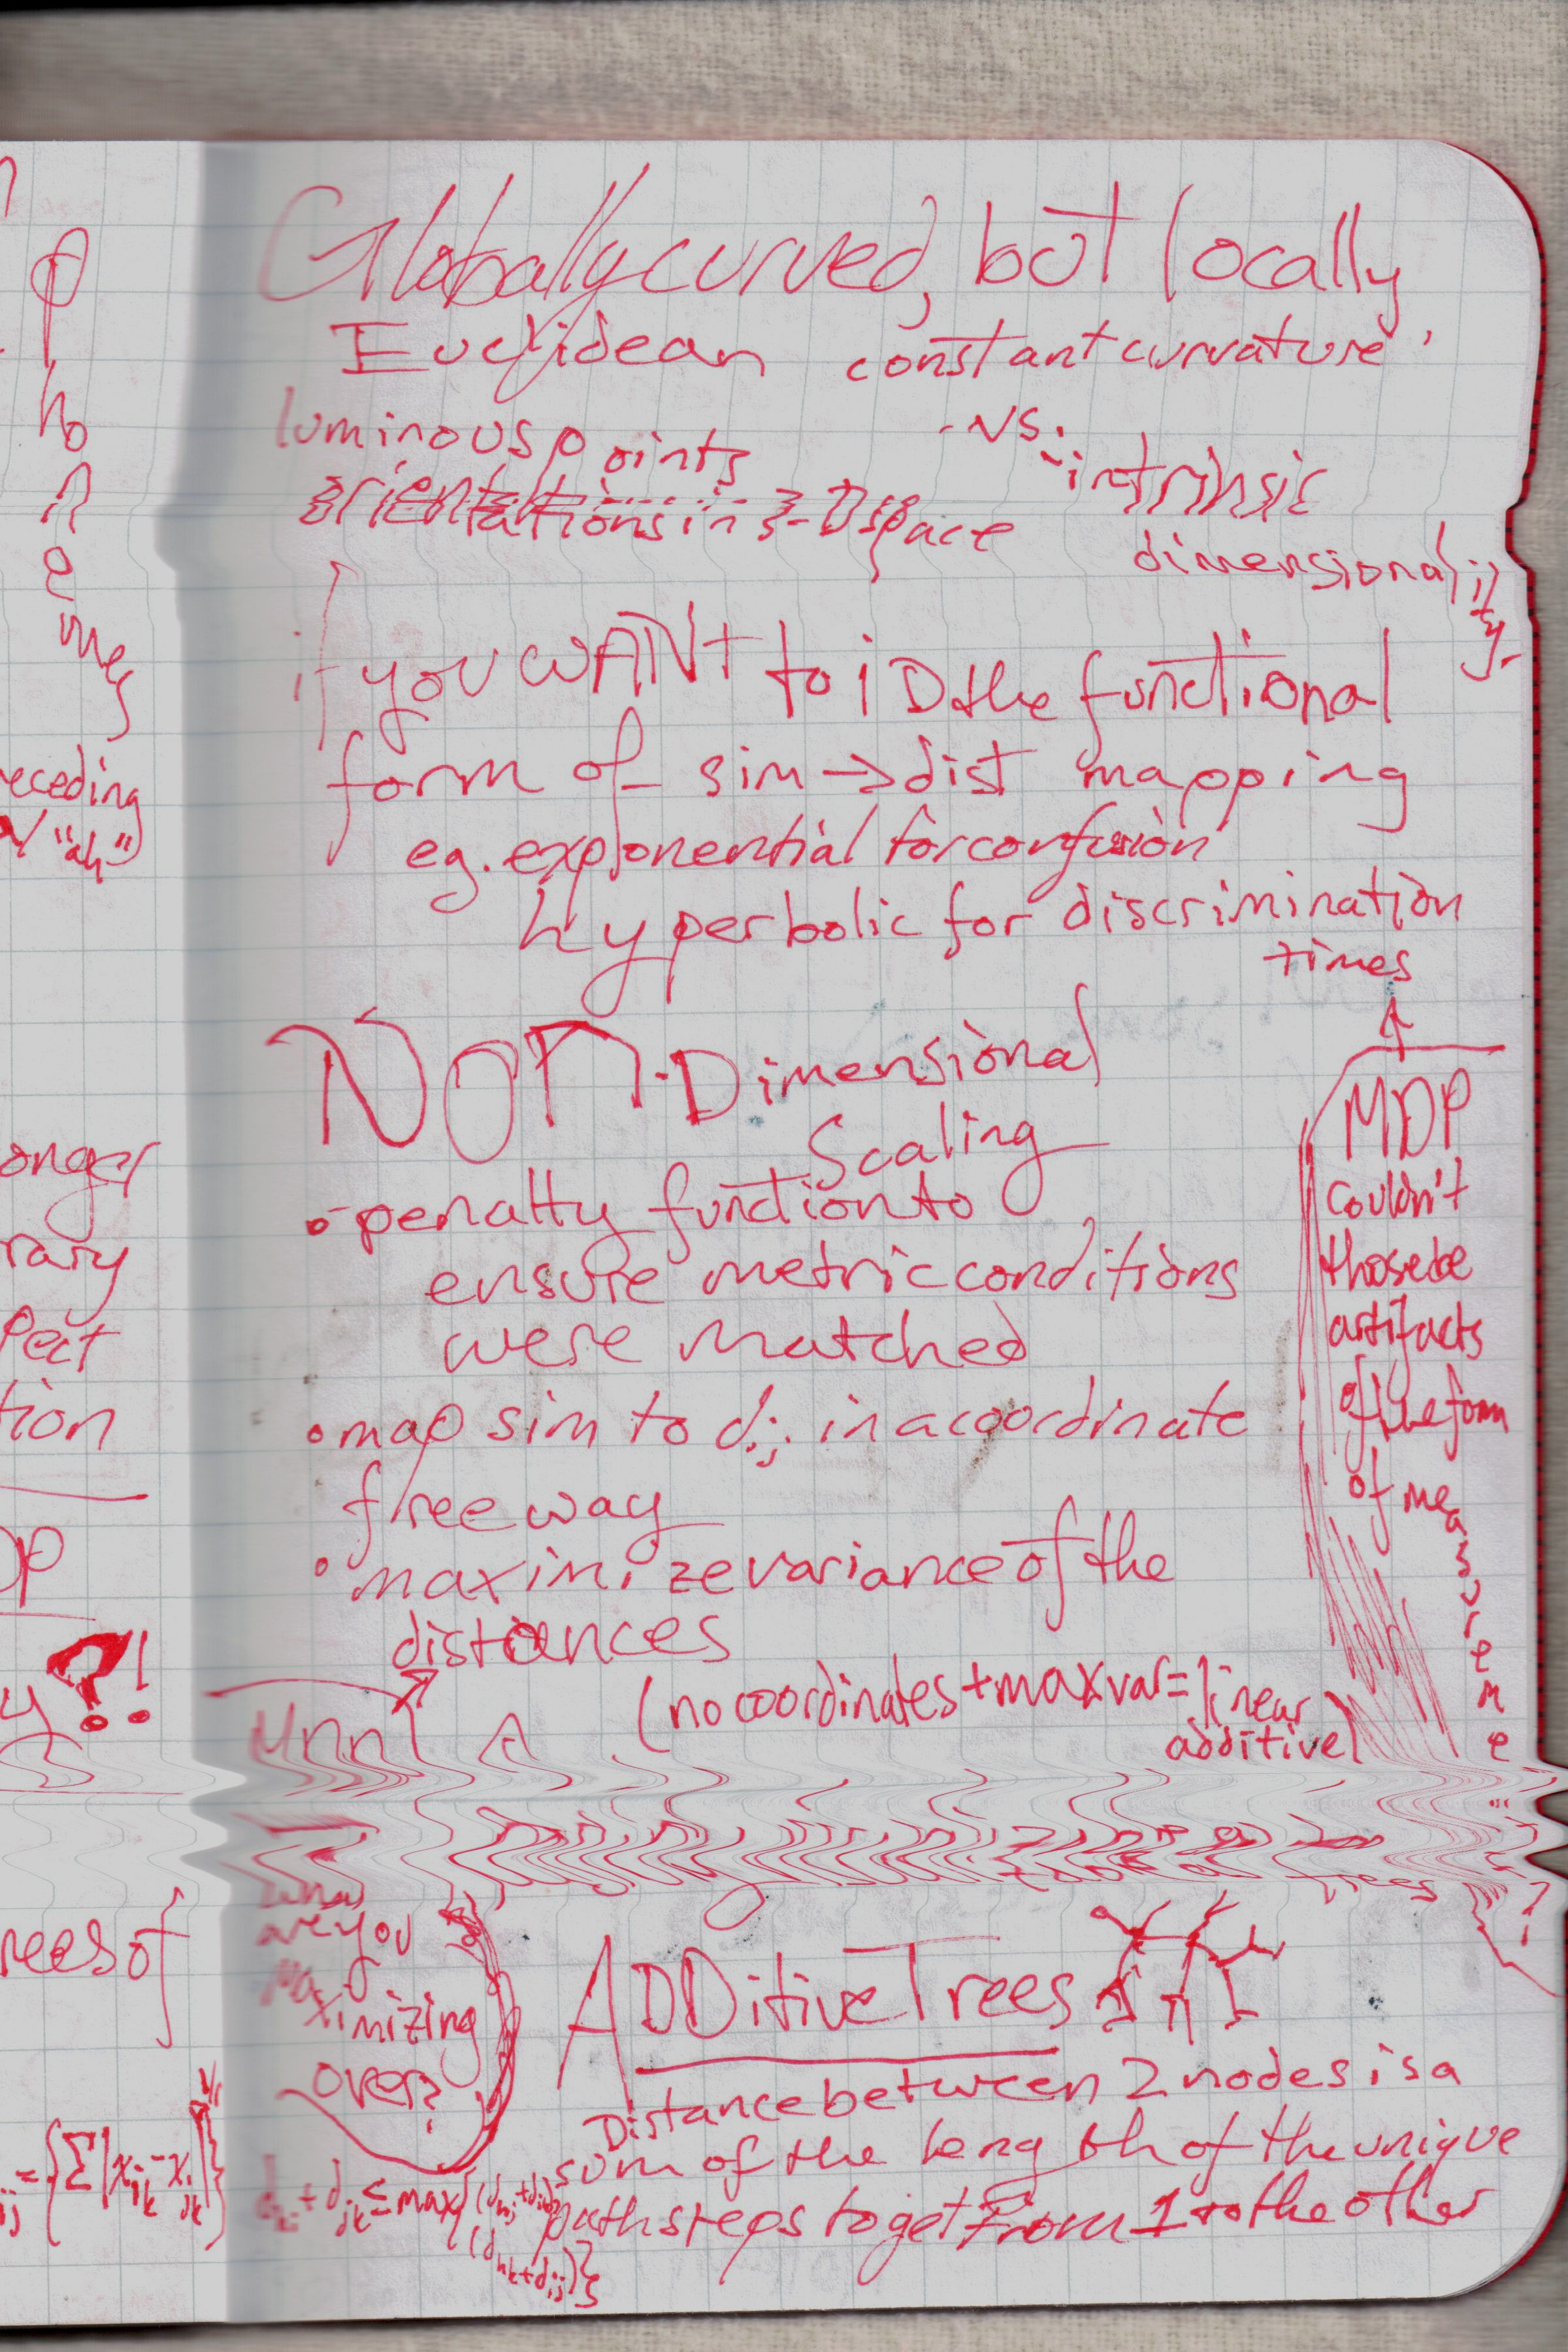 p
ho
n
e
mes
eceding
"ah"
onger
rary
fect
tion
?!
rees of
ij = {Σ|x_ik - x_jk|^r}^1/r
Globally curved, but locally
Euclidean constant curvature
luminous points - vs.
orientations in 3-D space intrinsic
dimensionality
if you WANT to ID the functional
form of sim → dist mapping
eg. exponential for confusion
hyperbolic for discrimination
times
NON-Dimensional
Scaling
• penalty function to
ensure metric conditions
were matched
• map sim to dij in a coordinate
free way
• maximize variance of the
distances
(no coordinates + max var = linear
additive)
MDP
couldn't
those be
artifacts
of the form
of measureme
trees
are you
maximizing
over?
ADDitive Trees
Distance between 2 nodes is a
sum of the length of the unique
path steps to get from 1 to the other
d_hi + d_jk ≤ max{(d_hj + d_ik),
(d_hk + d_ij)}